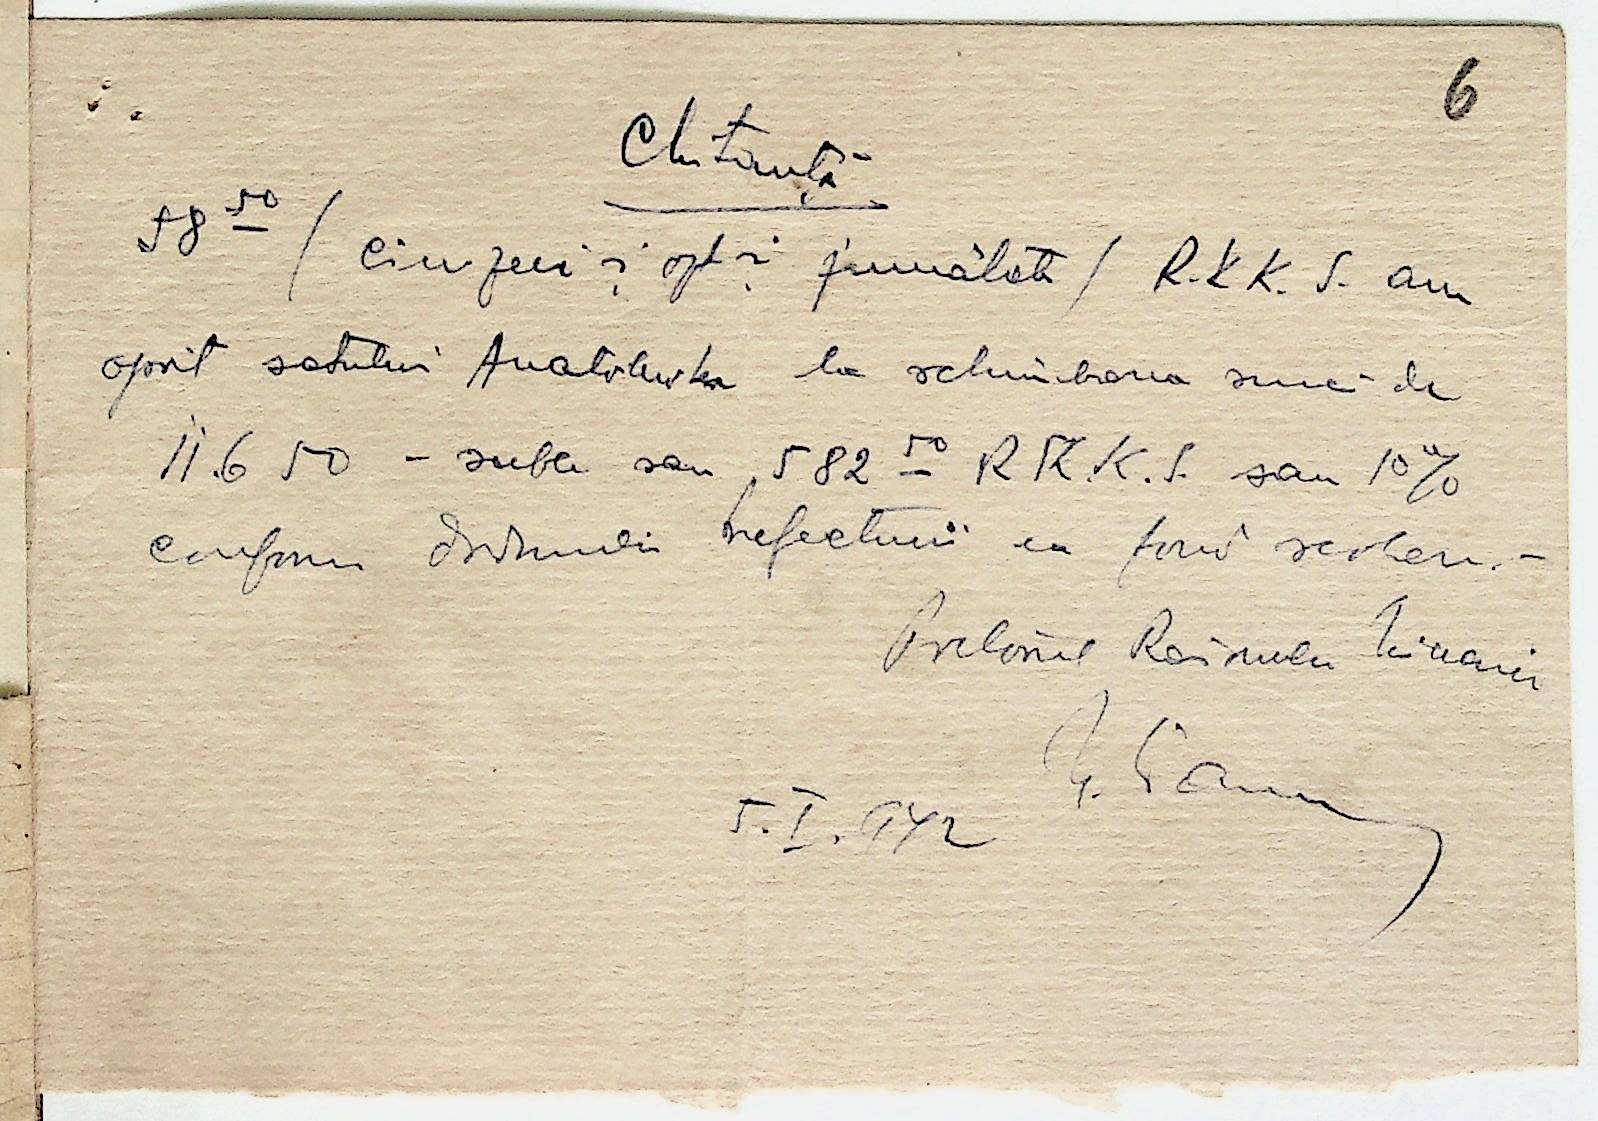 6
Chitanță
58 50 / cinzeci și opt și jumătate / R.K.K.S. am
oprit satului Anatolevka la schimbarea sumei de
11.650 - ruble sau 582 50 R.K.K.S. sau 10%
conform ordinului Prefecturii ca fond
Pretorul Raionului
5.I.942